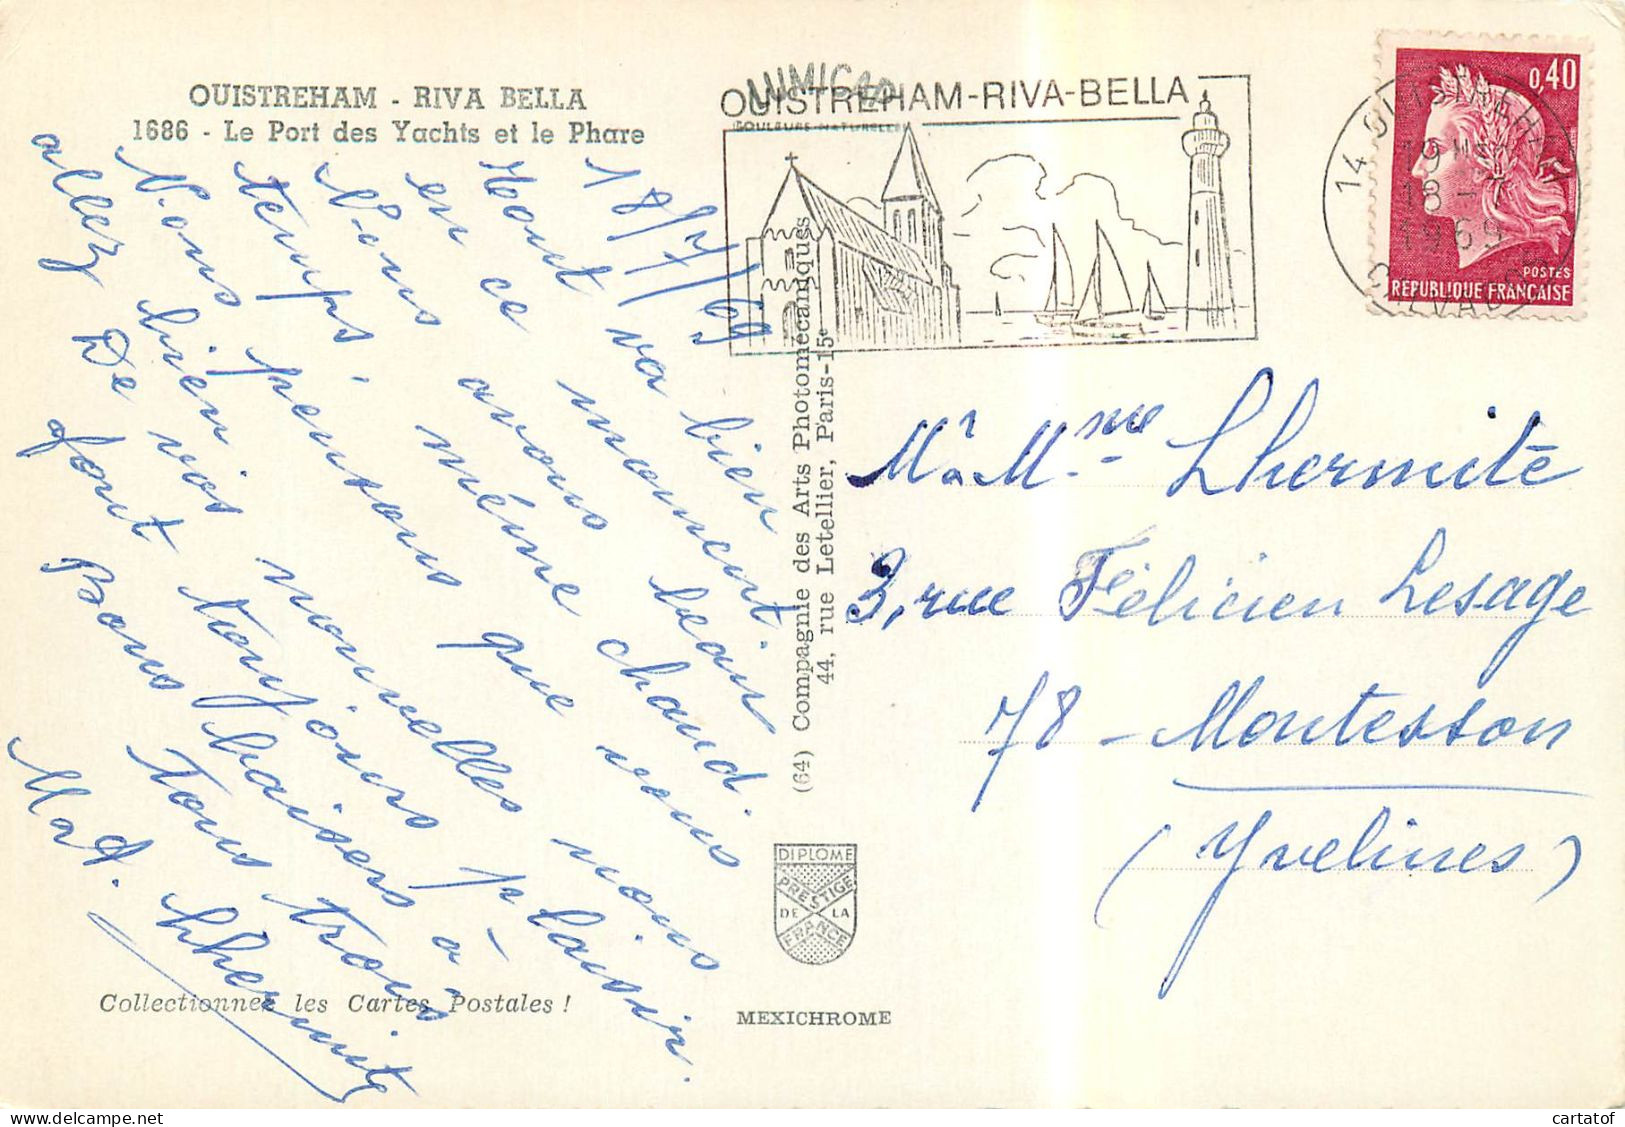 OUISTREHAM - RIVA BELLA
1686 - Le Port des Yachts et le Phare
18/7/69
Tout va bien
en ce moment.
Nous avons beau
temps, même chaud.
Nous pensons que vous
allez bien
De vos nouvelles nous
font toujours plaisir.
Bons baisers à
Tous trois
M at A. Lhermite
Collectionnez les Cartes Postales !
LUMICAP
COULEURS NATURELLES
OUISTREHAM-RIVA-BELLA
(64) Compagnie des Arts Photomécaniques
44, rue Letellier, Paris-15e
DIPLOME
PRESTIGE
DE LA
FRANCE
MEXICHROME
0,40
POSTES
REPUBLIQUE FRANÇAISE
14 OUISTREHAM
19 H
18 - 7
1969
CALVADOS
Mr & Mme Lhermite
3, rue Félicien Lesage
78 - Montesson
(Yvelines)
cartatof